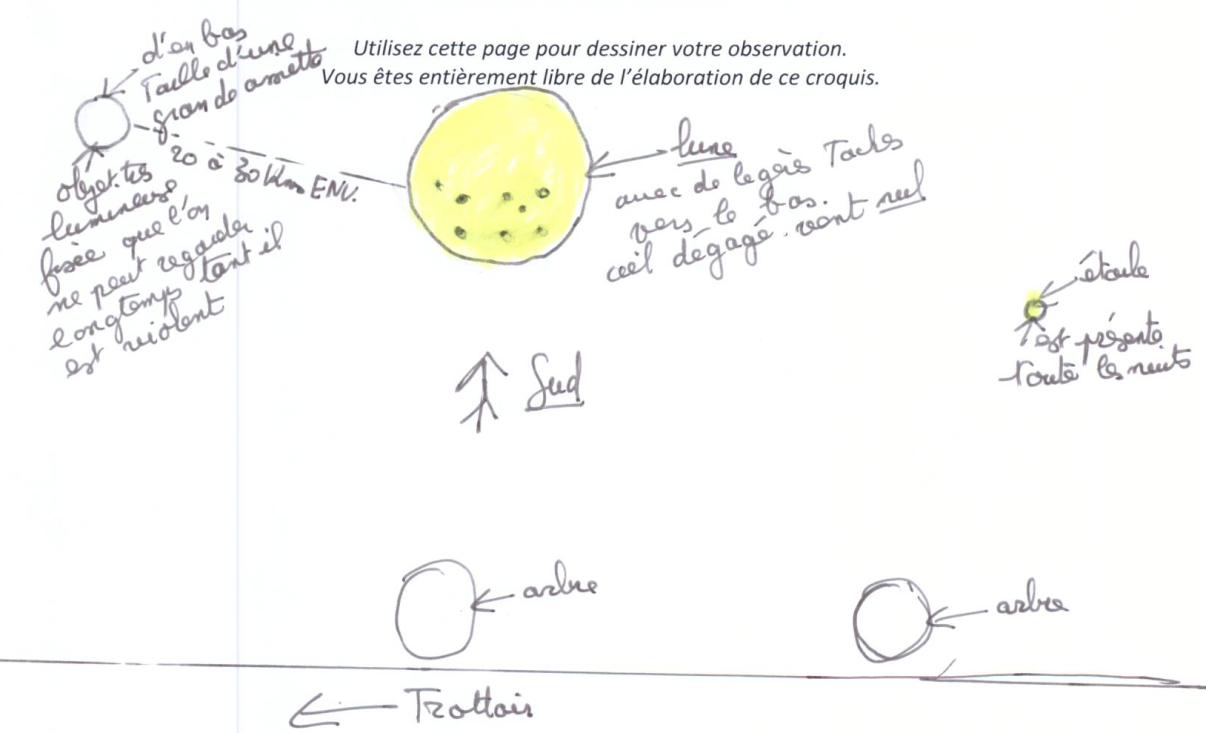 Utilisez cette page pour dessiner votre observation.
Vous êtes entièrement libre de l'élaboration de ce croquis.
d'en bas
Taille d'une
grande
20 à 30 klm ENV.
objet très
lumineux
que l'on
ne peut regarder
longtemps tant il
est violent
lune
avec de legères Taches
vers le bas.
ciel dégagé. vent nul
étoile
est présente
Toute les nuits
Sud
arbre
arbre
Trottoir